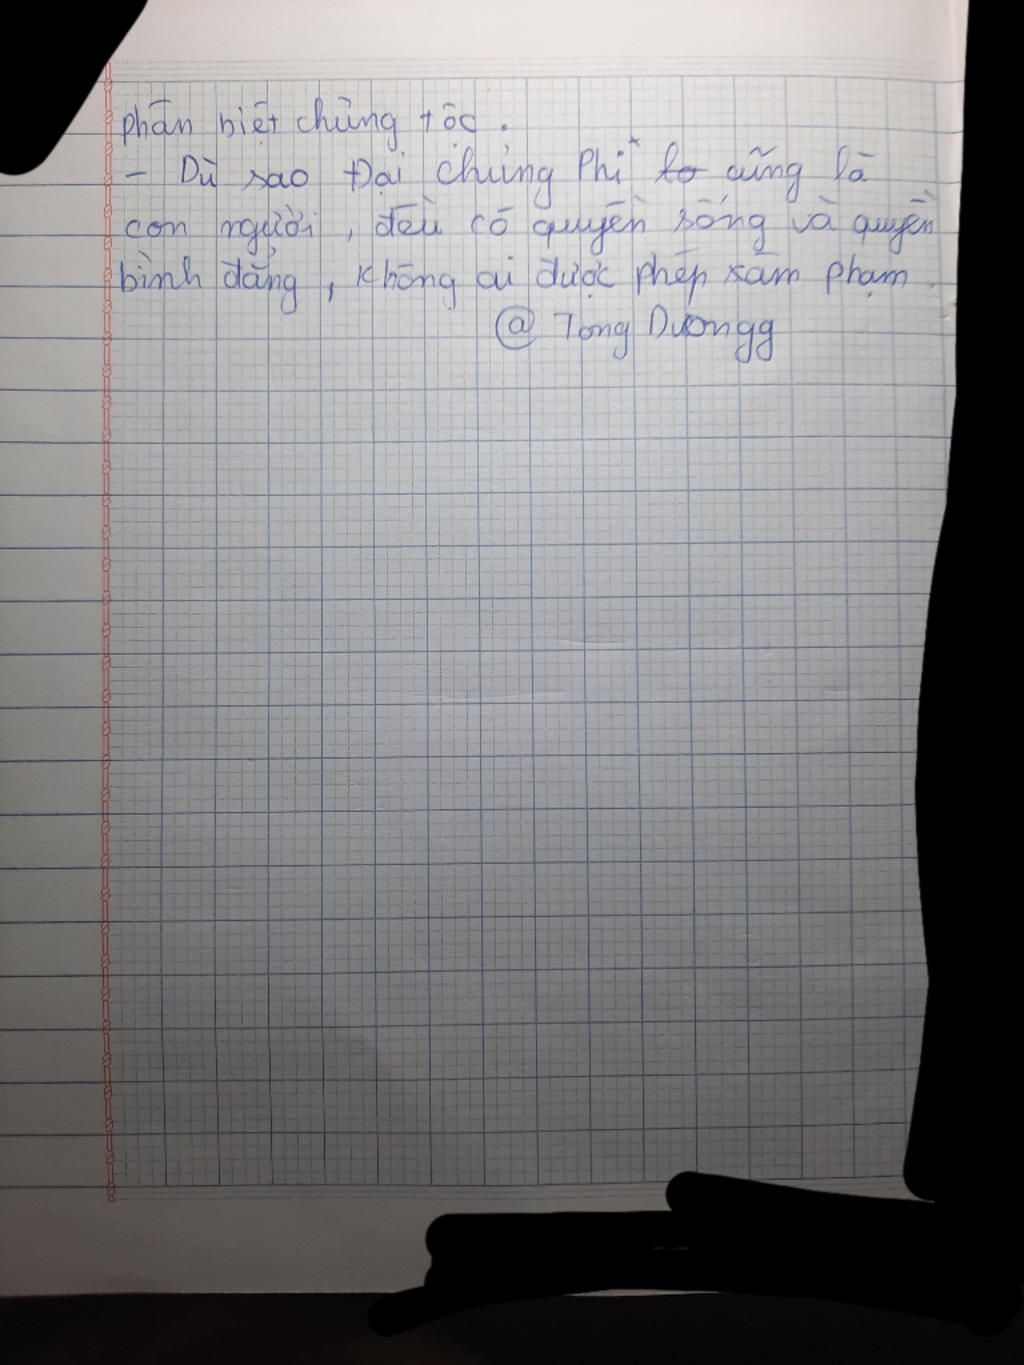 phân biệt chủng tộc.
- Dù sao Đại chủng Phi cũng là
con người, đều có quyền sống và quyền
bình đẳng, không ai được phép xâm phạm.
@ Tong Duongg